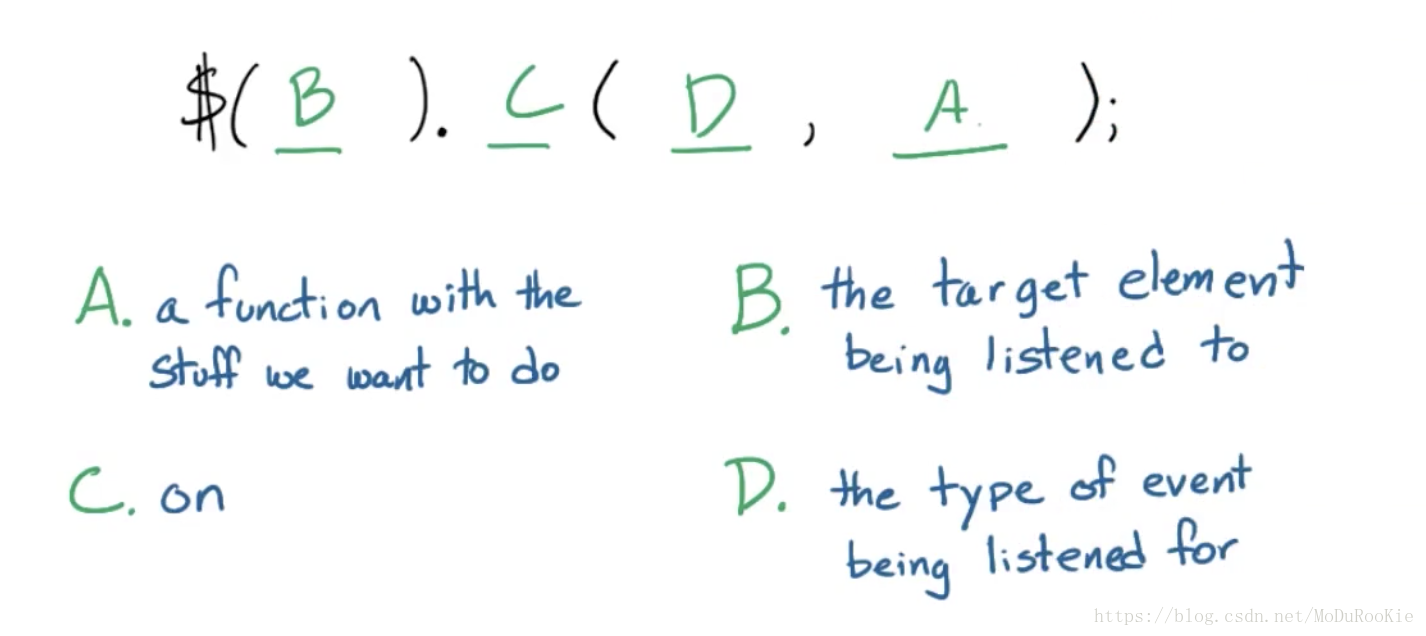 $( B ). C ( D , A );
A. a function with the
stuff we want to do
B. the target element
being listened to
C. on
D. the type of event
being listened for
https://blog.csdn.net/MoDuRooKie